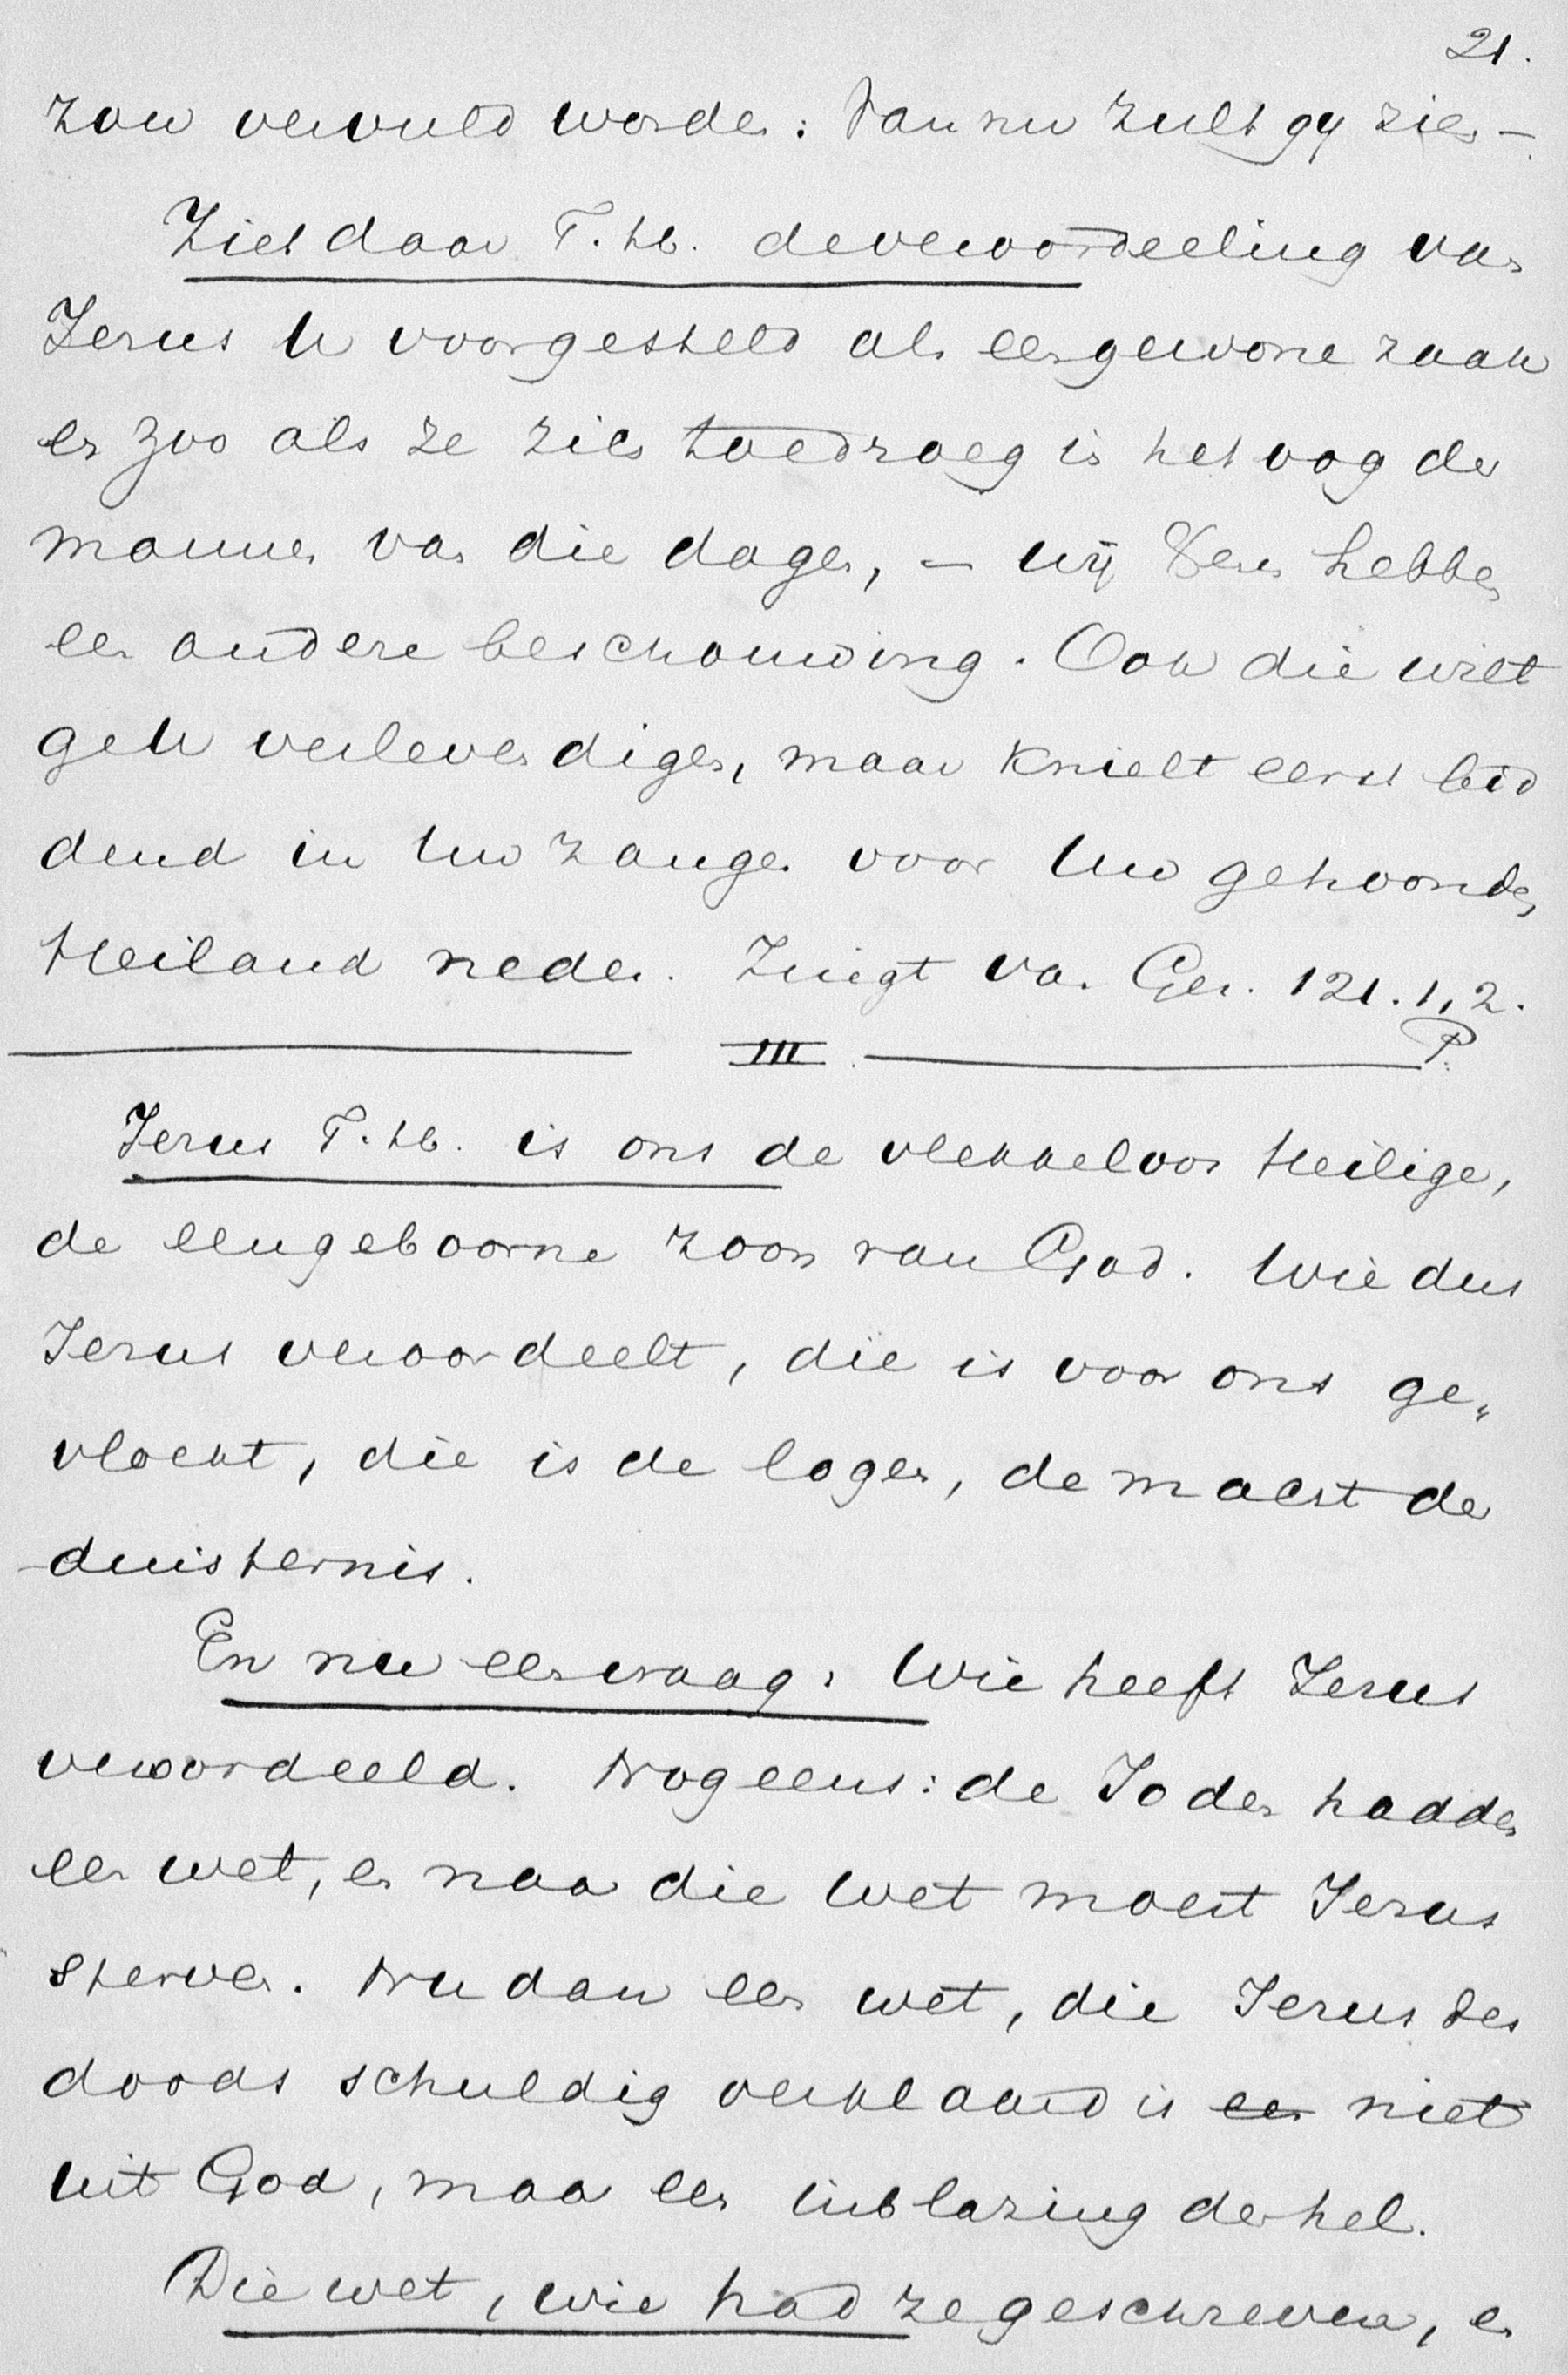 21.
zou vervuld worden: Van nu zult gy zien –
Ziet daar T. H. de veroordeeling van
Jesus U voorgesteld als een gewone zaak
en zoo als ze zich toedroeg in het oog der
mannen van die dagen, – wij hebben
een andere beschouwing. Ook die wilt
ge U verlevendigen, maar knielt eerst bid
dend in Uw zangen voor Uw gehoonden
Heiland neder. Zingt van Gez. 121. 1, 2.
III. P.
Jesus T. H. is ons de vlekkeloos Heilige,
de eengeboorne zoon van God. Wie dus
Jesus veroordeelt, die is voor ons ge„
vloekt, die is de logen, de macht der
duisternis.
En nu een vraag: Wie heeft Jesus
veroordeeld. Nog eens: de Joden hadden
een wet, en naar die wet moest Jesus
sterven. Nu dan een wet, die Jesus des
doods schuldig verklaard is een niet
uit God, maar een inblazing der hel.
Die wet, wie had ze geschreven, en